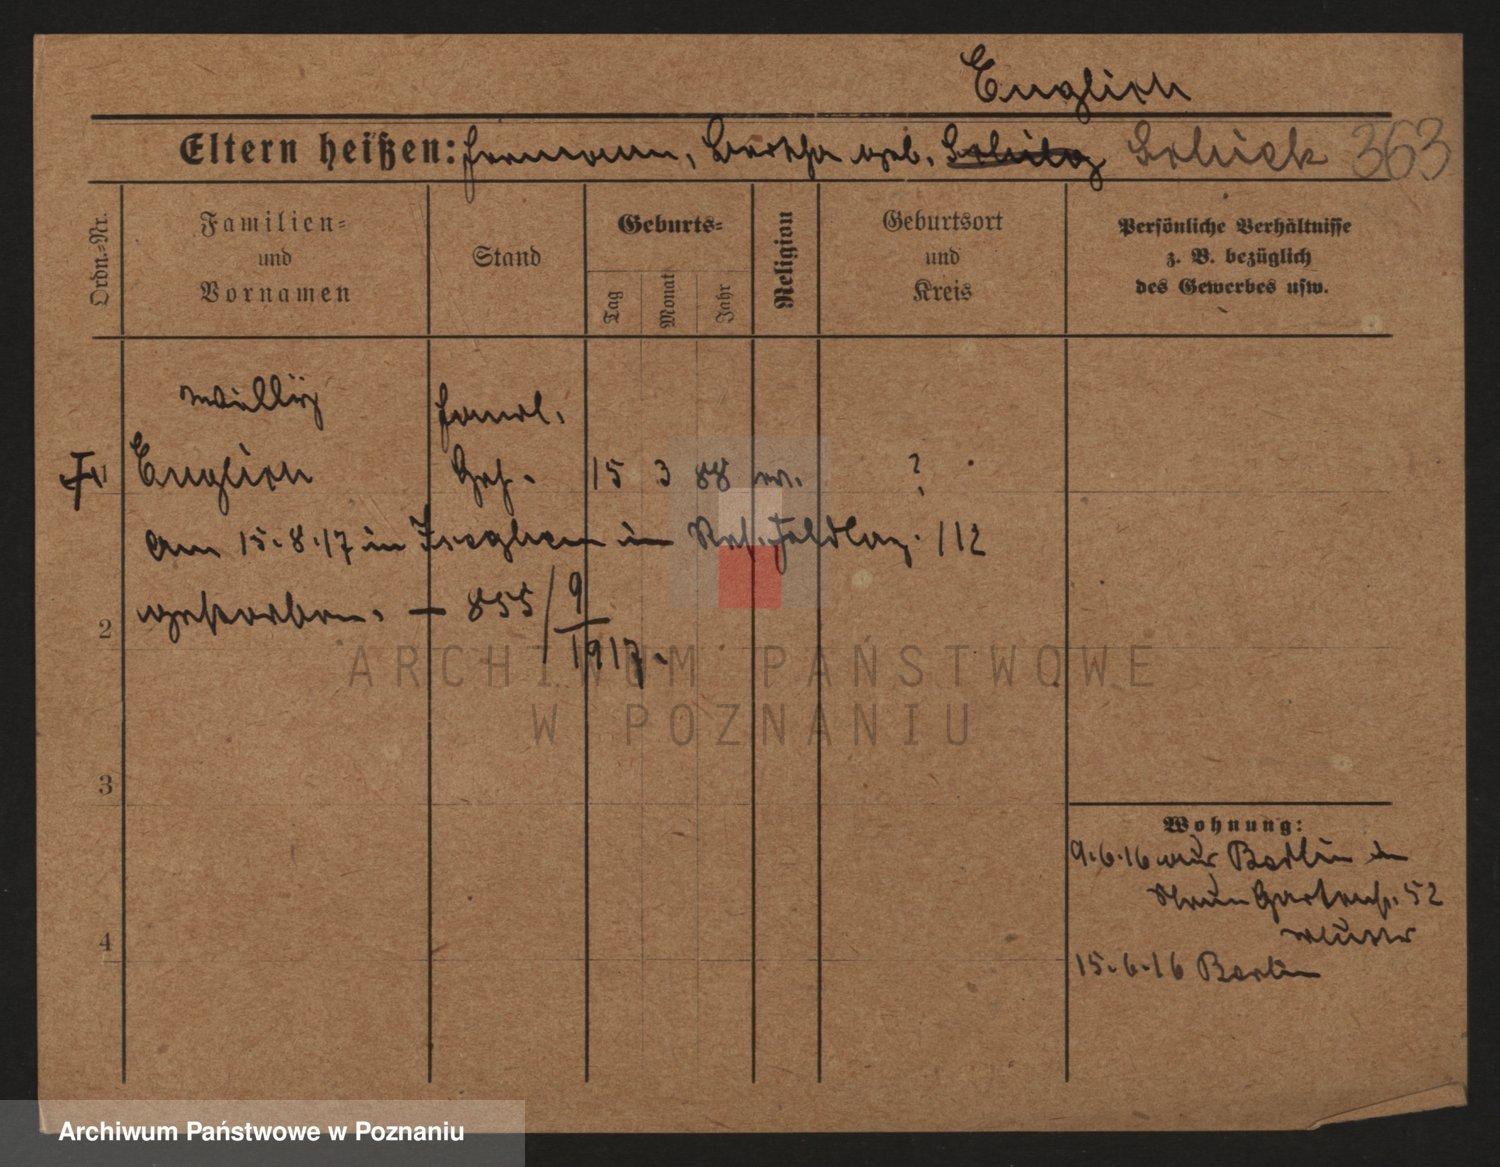 Englisch
Eltern heißen: Hermann, Bertha geb. Schulz Schick 363
Ordn.-Nr.
Familien-
und
Vornamen
Stand
Geburts-
Tag
Monat
Jahr
Religion
Geburtsort
und
Kreis
Persönliche Verhältnisse
z. B. bezüglich
des Gewerbes usw.
Willy Handl.
1 Englisch Geh. 15 3 88 ev. ?
am 15.8.17 in Iseghem im Res. Feldlaz. 112
2 gestorben. – 855/9
1917.
3
4
Wohnung:
9.6.16 aus Berlin in
Gartenstr. 52
Mutter
15.6.16 Berlin
ARCHIWUM PAŃSTWOWE
W POZNANIU
Archiwum Państwowe w Poznaniu